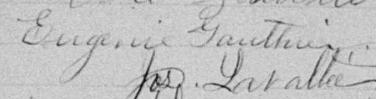 Eugenie Gauthier
Jos. Lavallée